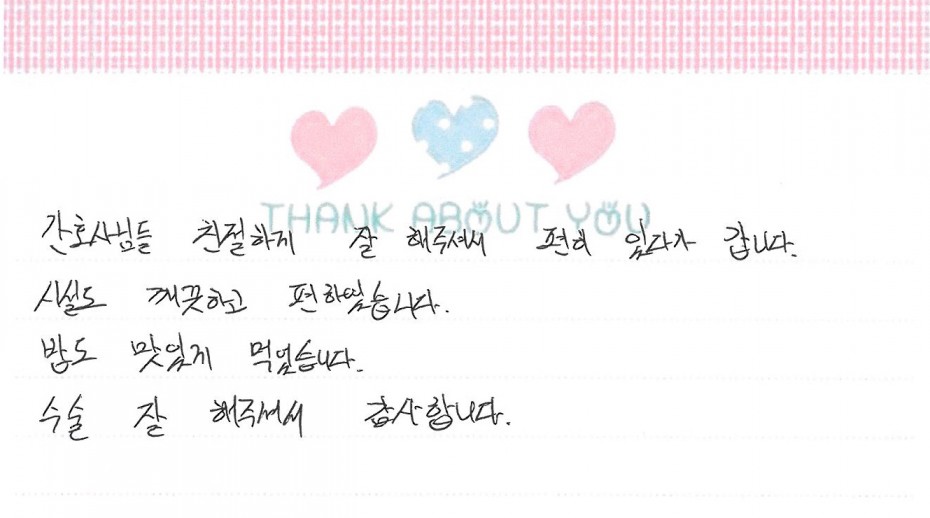 THANK ABOUT YOU
간호사님들 친절하게 잘 해주셔서 편히 있다가 갑니다.
시설도 깨끗하고 편하였습니다.
밥도 맛있게 먹었습니다.
수술 잘 해주셔서 감사합니다.